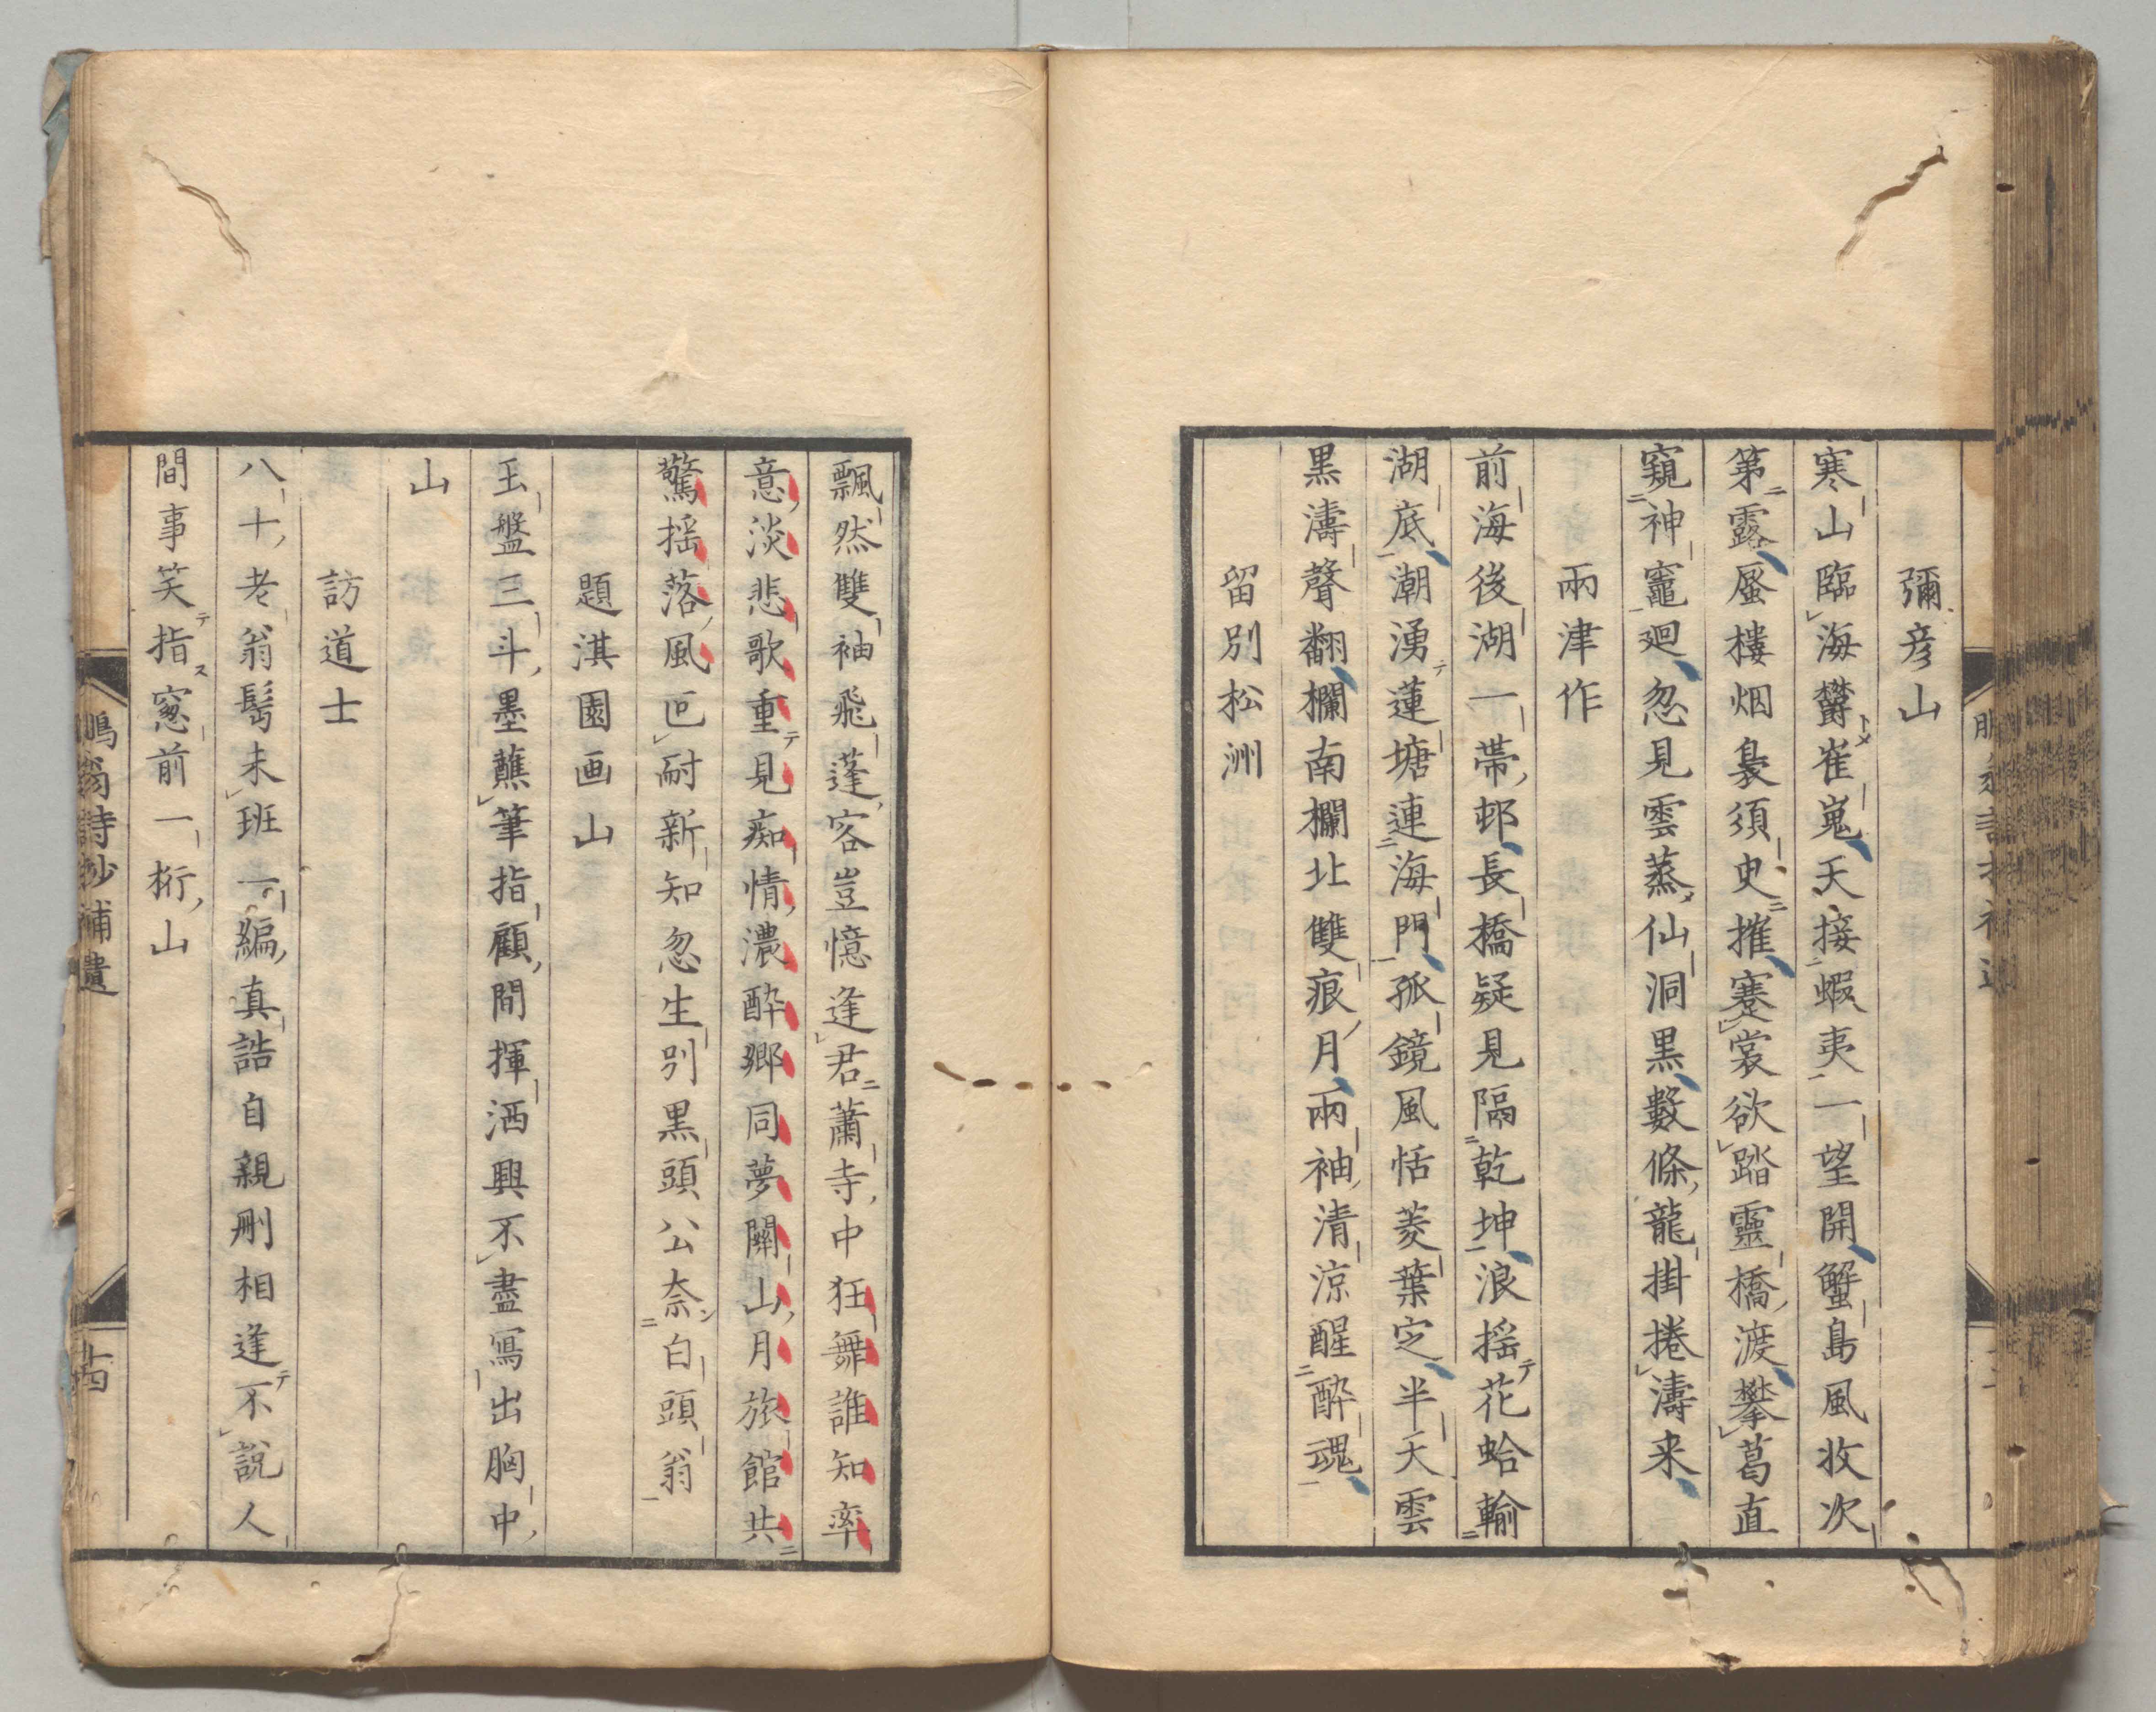 彌彦山
寒山臨海欝崔嵬天接蝦夷一望開蟹島風收次
第露蜃樓烟裊須史摧蹇裳欲踏靈橋渡攀葛直
窺神竈廻忽見雲蒸仙洞黒數條龍掛捲濤来
兩津作
前海後湖一帯邨長橋疑見隔乾坤浪揺花蛤輸
湖底潮湧蓮塘連海門孤鏡風恬菱葉定半天雲
黒濤聲翻欄南欄北雙痕月兩袖清涼醒酔魂
留別松洲
飄然雙袖飛蓬客豈憶逢君蕭寺中狂舞誰知率
意淡悲歌重見痴情濃酔郷同夢關山月旅館共
驚揺落風叵耐新知忽生別黒頭公奈白頭翁
題淇園画山
玉盤三斗墨蘸筆指顧間揮洒興不盡寫出胸中
山
訪道士
八十老翁髩未班一編真誥自親刪相逢不説人
間事笑指窓前一桁山
鵬翁詩抄補遺
十四